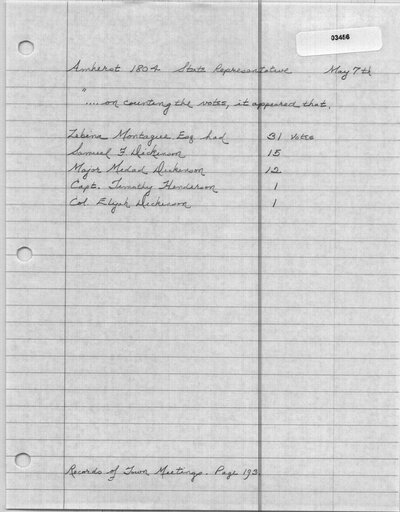 03466
Amherst 1804 State Representative May 7th
"
.... on counting the votes, it appeared that,
Zebina Montague Esq had 31 votes
Samuel F. Dickinson 15
Major Medad Dickinson 12
Capt. Timothy Henderson 1
Col. Elijah Dickinson 1
Records of Town Meetings. Page 193.